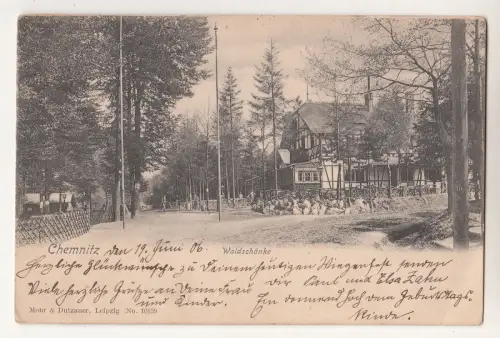 Chemnitz, den 19. Juni 06. Waldschänke
Herzliche Glückwünsche zu Deinem heutigen Wiegenfest senden
der Paul und Elsa Zahn
Viele herzliche Grüsse an Deine Frau
und Kinder.
Ein dem Geburtstags-
Kinde.
Mohr & Dutzauer, Leipzig No.